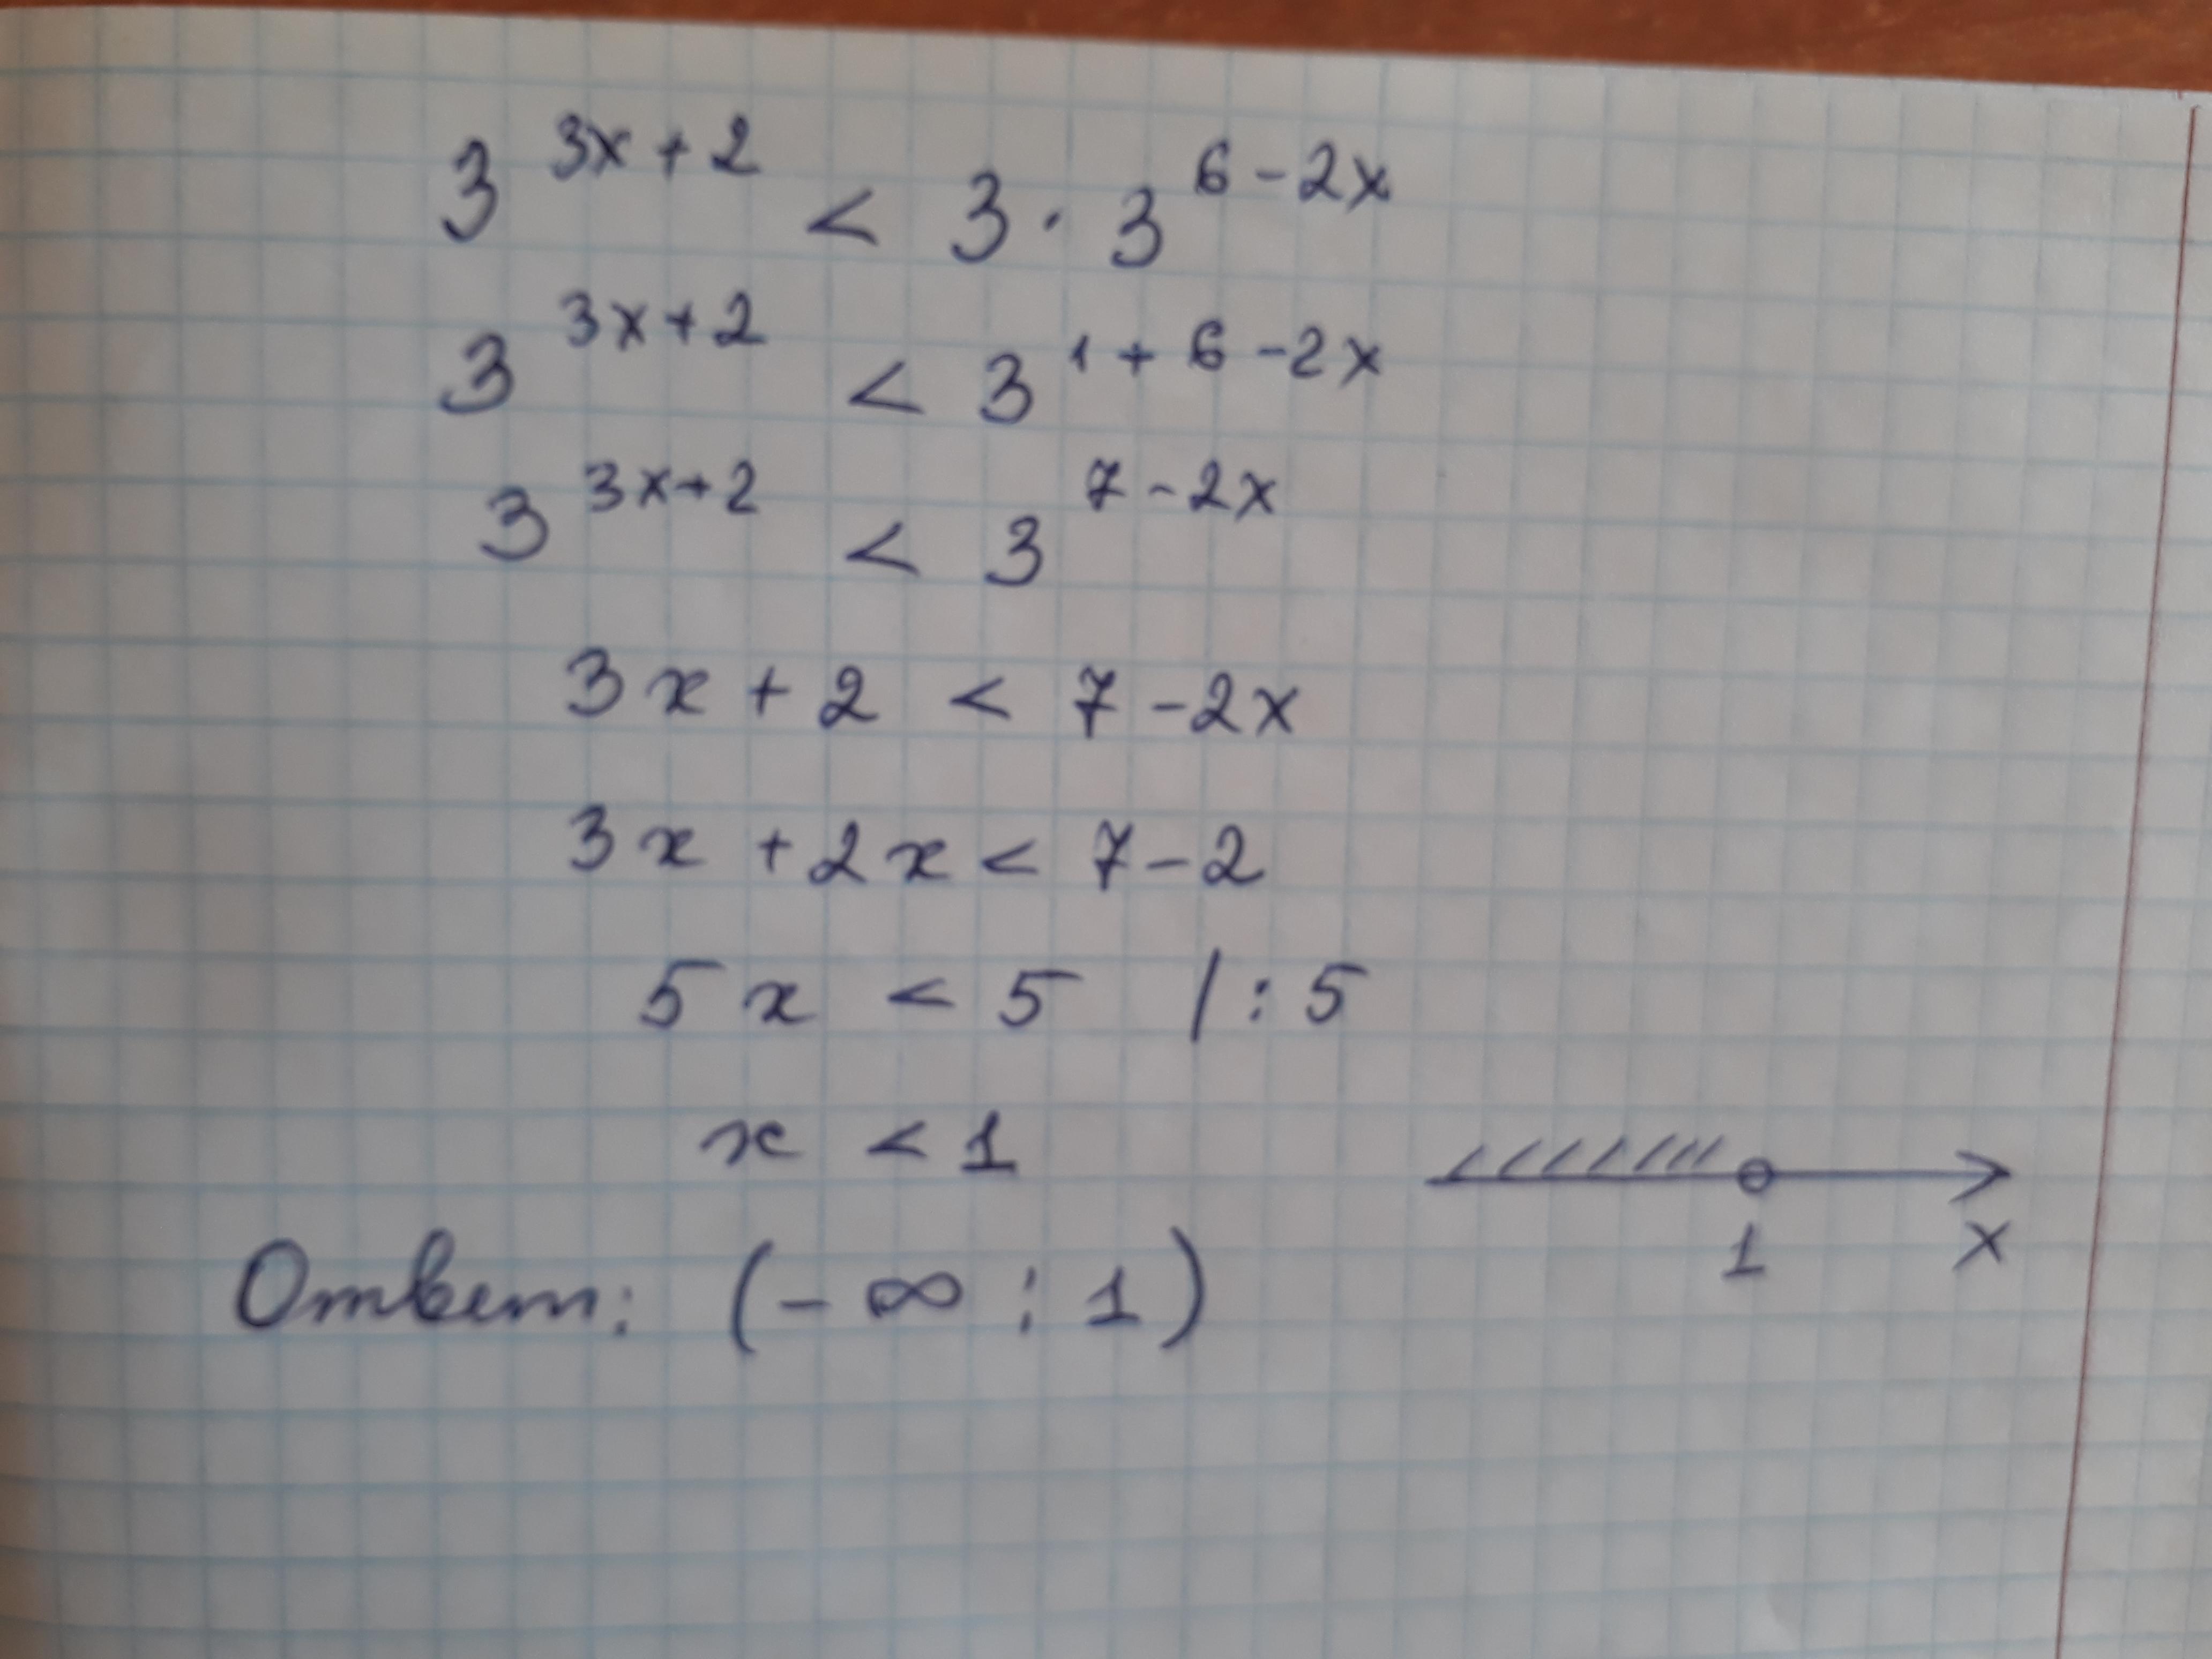 3^{3x+2} < 3 · 3^{6-2x}
3^{3x+2} < 3^{1+6-2x}
3^{3x+2} < 3^{7-2x}
3x + 2 < 7 - 2x
3x + 2x < 7 - 2
5x < 5 | : 5
x < 1
1 x
Ответ: (-∞ ; 1)